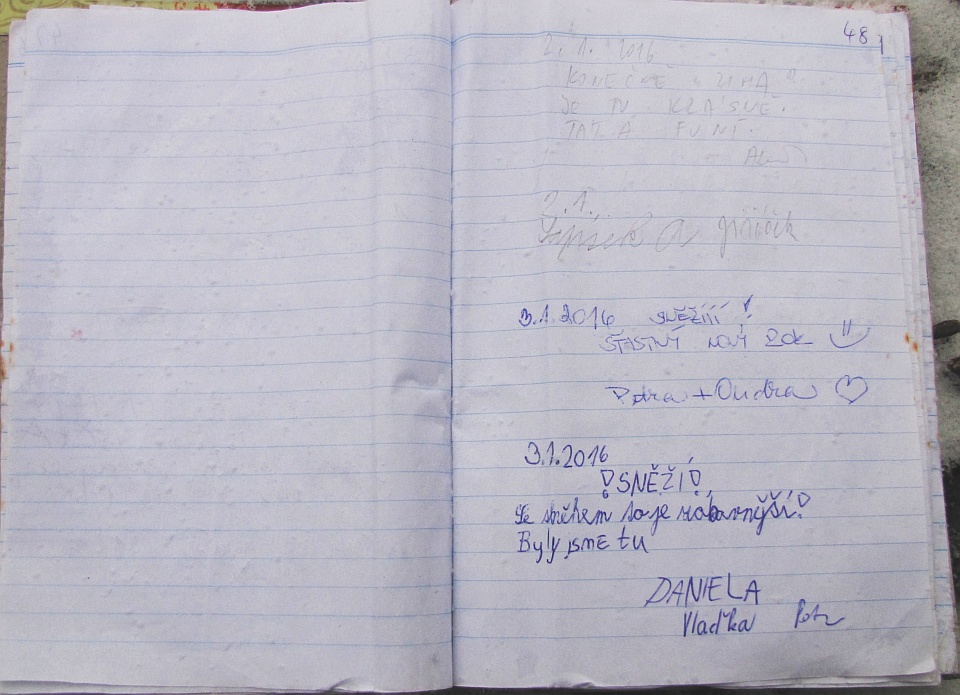 48
2. 1. 2016
KONEČNĚ ZIMA
JE TU KRÁSNĚ.
2. 1.
a
3.1.2016 SNĚŽÍÍÍ!
ŠŤASTNÝ NOVÝ ROK
Petra + Ondra
3.1.2016
!SNĚŽÍ!
Se sněhem to je zábavnější!
Byly jsme tu
DANIELA
Vlaďka Petr